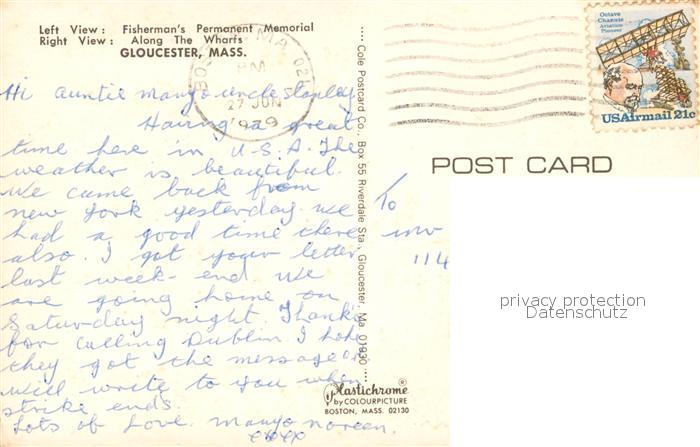 Left View : Fisherman's Permanent Memorial
Right View : Along The Wharfs
GLOUCESTER, MASS.
PM
27 JUN
1979
Octave
Chanute
Aviation
Pioneer
USAirmail 21c
POST CARD
Hi Auntie Mary & uncle stanley
Having a great
time here in U.S.A. The
weather is beautiful.
We came back from
new York yesterday we
had a good time there
also. I got your letter
last week-end. We
are going home on
Saturday night. Thanks
for calling Dublin I hope
they got the message
will write to you when
strike ends.
Lots of Love. noreen.
xxxx
Cole Postcard Co., Box 55 Riverdale Sta., Gloucester, Ma. 01930
To
114
privacy protection
Datenschutz
Plastichrome®
by COLOURPICTURE
BOSTON, MASS. 02130